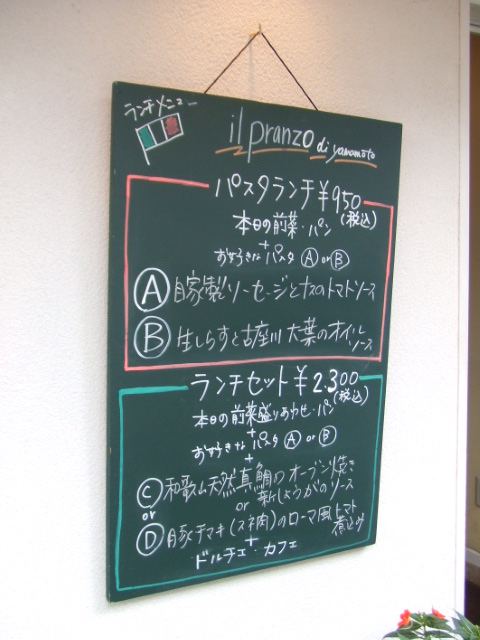 ランチメニュー
il pranzo di yamamoto
パスタランチ ¥950
(税込)
本日の前菜・パン
+
お好きな パスタ Ⓐ or Ⓑ
Ⓐ 自家製ソーセージとナスのトマトソース
Ⓑ 生しらすと古座川 大葉のオイル
ソース
ランチセット ¥2.300
(税込)
本日の前菜盛りあわせ・パン
+
お好きな パスタ Ⓐ or Ⓑ
+
Ⓒ 和歌山天然真鯛のオーブン焼き
or 新しょうがのソース
or
Ⓓ 豚チマキ(スネ肉)のローマ風トマト
煮込み
+
ドルチェ・カフェ